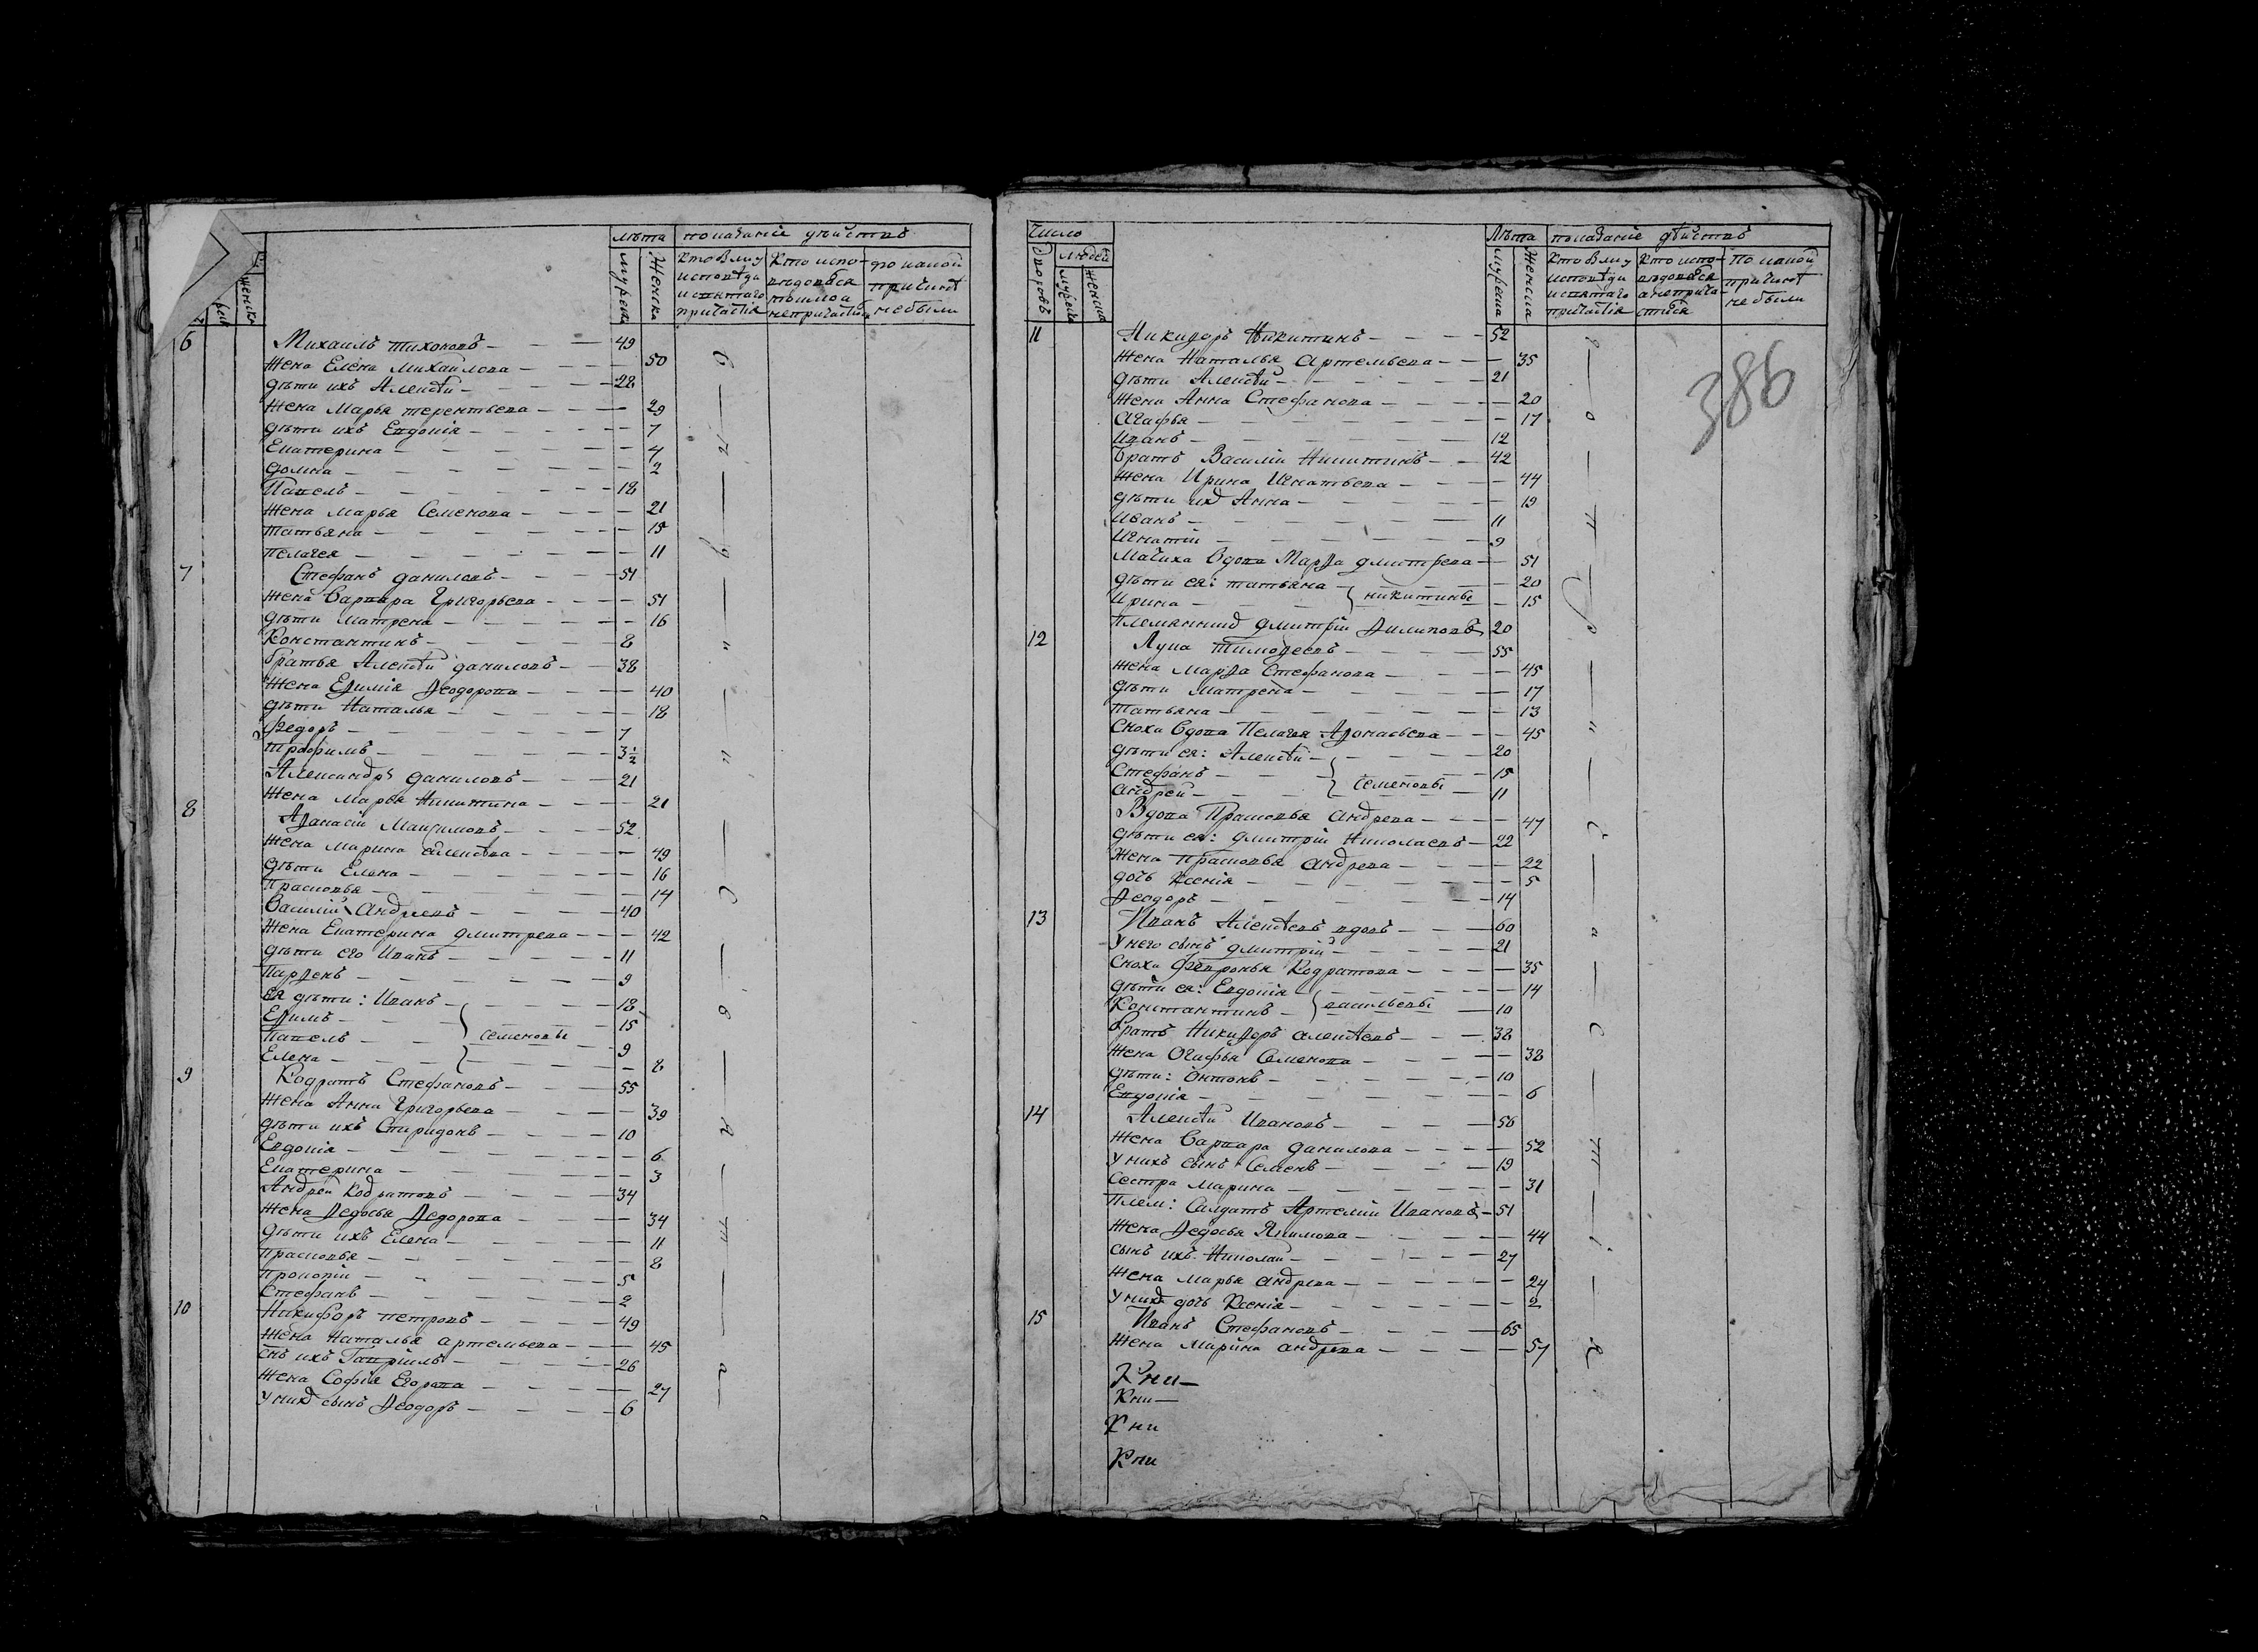 лѣта показаніе дѣйствъ
мужеска
женска
кто былъ у исповѣди и святаго причастія
кто исповѣдовался токмо а не причастился
по какой причинѣ не были
женска
6 Михаилъ тихоновъ 49
жена Елена михайлова 50
дѣти ихъ Алексѣй 28
жена Марья терентьева 29
дѣти ихъ Евдокія 7
Екатерина 4
домна 2
Павелъ 18
жена марья Семенова 21
татьяна 15
пелагея 11
7 Стефанъ даниловъ 51
жена Варвара Григорьева 51
дѣти матрена 16
Константинъ 8
братья Алексѣй даниловъ 38
жена Еѳимія Ѳеодорова 40
дѣти Наталья 18
Федоръ 7
трофимъ 3½
Александръ даниловъ 21
жена марья Никитина 21
8 Аѳанасій Максимовъ 52
жена марина алексѣева 49
дѣти Елена 16
Прасковья 14
Василій Андреевъ 40
жена Екатерина дмитрева 42
дѣти его Иванъ 11
Парѳенъ 9
Ея дѣти: Иванъ 18
Еѳимъ 15
Павелъ семеновы 9
Елена 8
9 Кодратъ Стефановъ 55
жена Анна Григорьева 39
дѣти ихъ Спиридонъ 10
Евдокія 6
Екатерина 3
Андрей Кодратовъ 34
жена Ѳедосья Ѳедорова 34
дѣти ихъ Елена 11
прасковья 8
прокопій 5
Стефанъ 2
10 Никифоръ петровъ 49
жена Наталья артемьева 45
снъ ихъ Гавріилъ 26
жена Софія Егорова 27
у нихъ сынъ Ѳеодоръ 6
Число
дворовъ
людей
мужеска
женска
Лѣта показаніе дѣйствъ
мужеска
женска
кто былъ у исповѣди и святаго причастія
кто исповѣдовался а не причастился
По какой причинѣ не были
386
11 Никиѳоръ Никитинъ 52
жена Наталья Артемьева 35
дѣти Алексѣй 21
жена Анна Стефанова 20
Агафья 17
Иванъ 12
братъ Василій Никитинъ 42
жена Ирина Игнатьева 44
дѣти ихъ Анна 19
Иванъ 11
Игнатій 9
Мачиха вдова Марѳа дмитрева 51
дѣти ея: татьяна 20
Ирина никитины 15
Племянникъ дмитрій Ѳилиповъ 20
12 Лука Тимоѳеевъ 55
жена марѳа Стефанова 45
дѣти матрена 17
татьяна 13
Сноха вдова Пелагея Аѳонасьева 45
дѣти ея: Алексѣй 20
Стефанъ 15
андрей семеновы 11
Вдова Прасковья андрева 47
дѣти ея: дмитрій Николаевъ 22
жена прасковья андрева 22
дочь Ксенія 5
Ѳеодоръ 14
13 Иванъ Алексѣевъ вдовъ 60
у него сынъ дмитрій 21
сноха февронья Кодратова 35
дѣти ея: Евдокія 14
Константинъ васильевы 10
братъ Никиѳоръ алексѣевъ 38
жена Огафья Семенова 38
дѣти: антонъ 10
Евдокія 6
14 Алексѣй Ивановъ 56
жена Варвара данилова 52
у нихъ сынъ Семенъ 19
сестра марина 31
плем: Салдатъ Артемій Ивановъ 51
жена Ѳедосья Якимова 44
сынъ ихъ Николай 27
жена марья андрева 24
у нихъ дочь Ксенія 2
15 Иванъ Стефановъ 65
жена Марина андрева 57
Кни
Кни
Кни
Кни